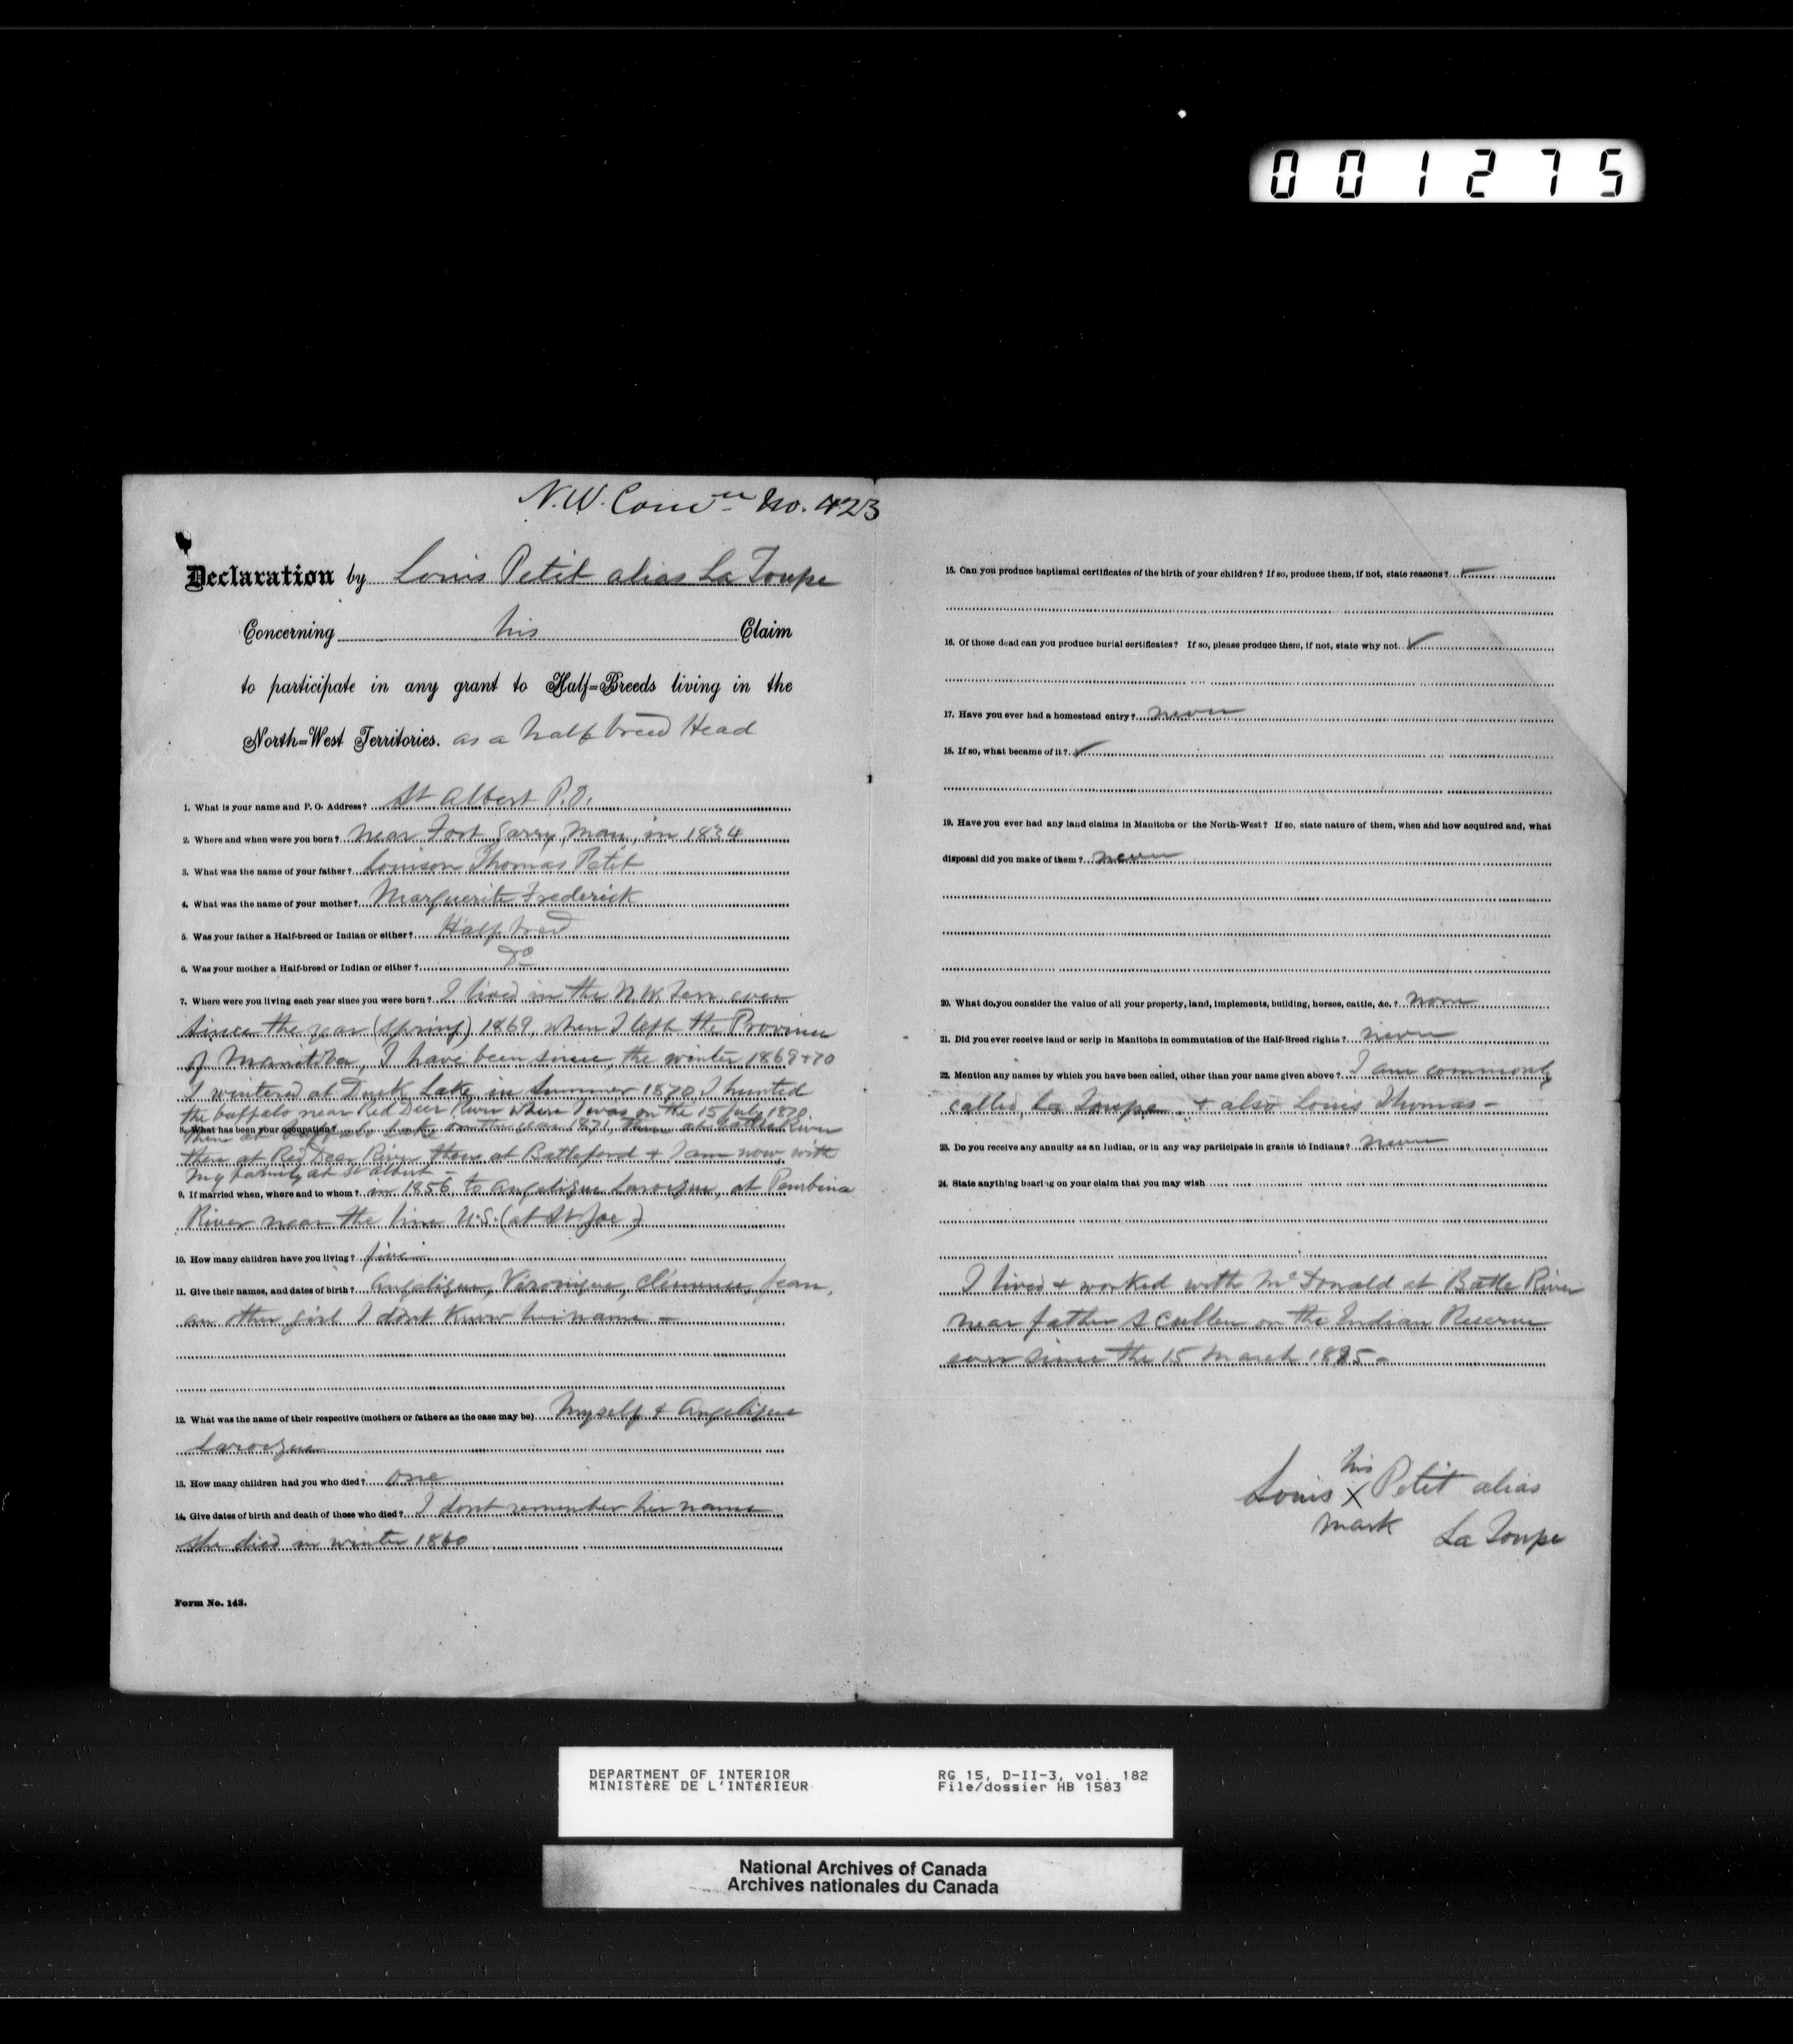 001275
N.W. Com'n No. 423
Declaration by Louis Petit alias La Toupe
Concerning his Claim
to participate in any grant to Half-Breeds living in the
North-West Territories. as a half breed Head
1. What is your name and P. O. Address? St Albert P.O.
2. Where and when were you born? near Fort Garry, Man, in 1834
3. What was the name of your father? Louison Thomas Petit
4. What was the name of your mother? Marguerite Frederick
5. Was your father a Half-breed or Indian or either? Half breed
6. Was your mother a Half-breed or Indian or either? Do
7. Where were you living each year since you were born? I lived in the N.W. Terr. ever
since the year (spring) 1869, when I left the Province
of Manitoba, I have been since, the winter 1869+70
I wintered at Duck Lake, in Summer 1870 I hunted
the buffalo near Red Deer River where I was on the 15 July 1870.
8. What has been your occupation?
then at Buffalo Lake on the year 1871, then at Battle River
then at Red Deer River then at Battleford & I am now with
my family at St Albert -
9. If married when, where and to whom? in 1856 to Angelique Larocque, at Pembina
River near the line U.S. (at St Joe)
10. How many children have you living? five
11. Give their names, and dates of birth? Angelique, Véronique, Clemence, Jean,
an other girl I dont know her name -
12. What was the name of their respective (mothers or fathers as the case may be) Myself & Angelique
Larocque
13. How many children had you who died? one
14. Give dates of birth and death of those who died? I dont remember her name
she died in winter 1860
Form No. 143.
15. Can you produce baptismal certificates of the birth of your children? If so, produce them, if not, state reasons? ✓
16. Of those dead can you produce burial certificates? If so, please produce them, if not, state why not. ✓
17. Have you ever had a homestead entry? never
18. If so, what became of it? ✓
19. Have you ever had any land claims in Manitoba or the North-West? If so, state nature of them, when and how acquired and, what
disposal did you make of them? never
20. What do you consider the value of all your property, land, implements, building, horses, cattle, &c.? none
21. Did you ever receive land or scrip in Manitoba in commutation of the Half-Breed rights? never
22. Mention any names by which you have been called, other than your name given above? I am commonly
called, La Toupe & also Louis Thomas -
23. Do you receive any annuity as an Indian, or in any way participate in grants to Indians? never
24. State anything bearing on your claim that you may wish
I lived & worked with McDonald at Battle River
near father Scullen on the Indian Reserve
ever since the 15 March 1885 -
Louis his X mark Petit alias
La Toupe
DEPARTMENT OF INTERIOR RG 15, D-II-3, vol. 182
MINISTÈRE DE L'INTÉRIEUR File/dossier HB 1583
National Archives of Canada
Archives nationales du Canada